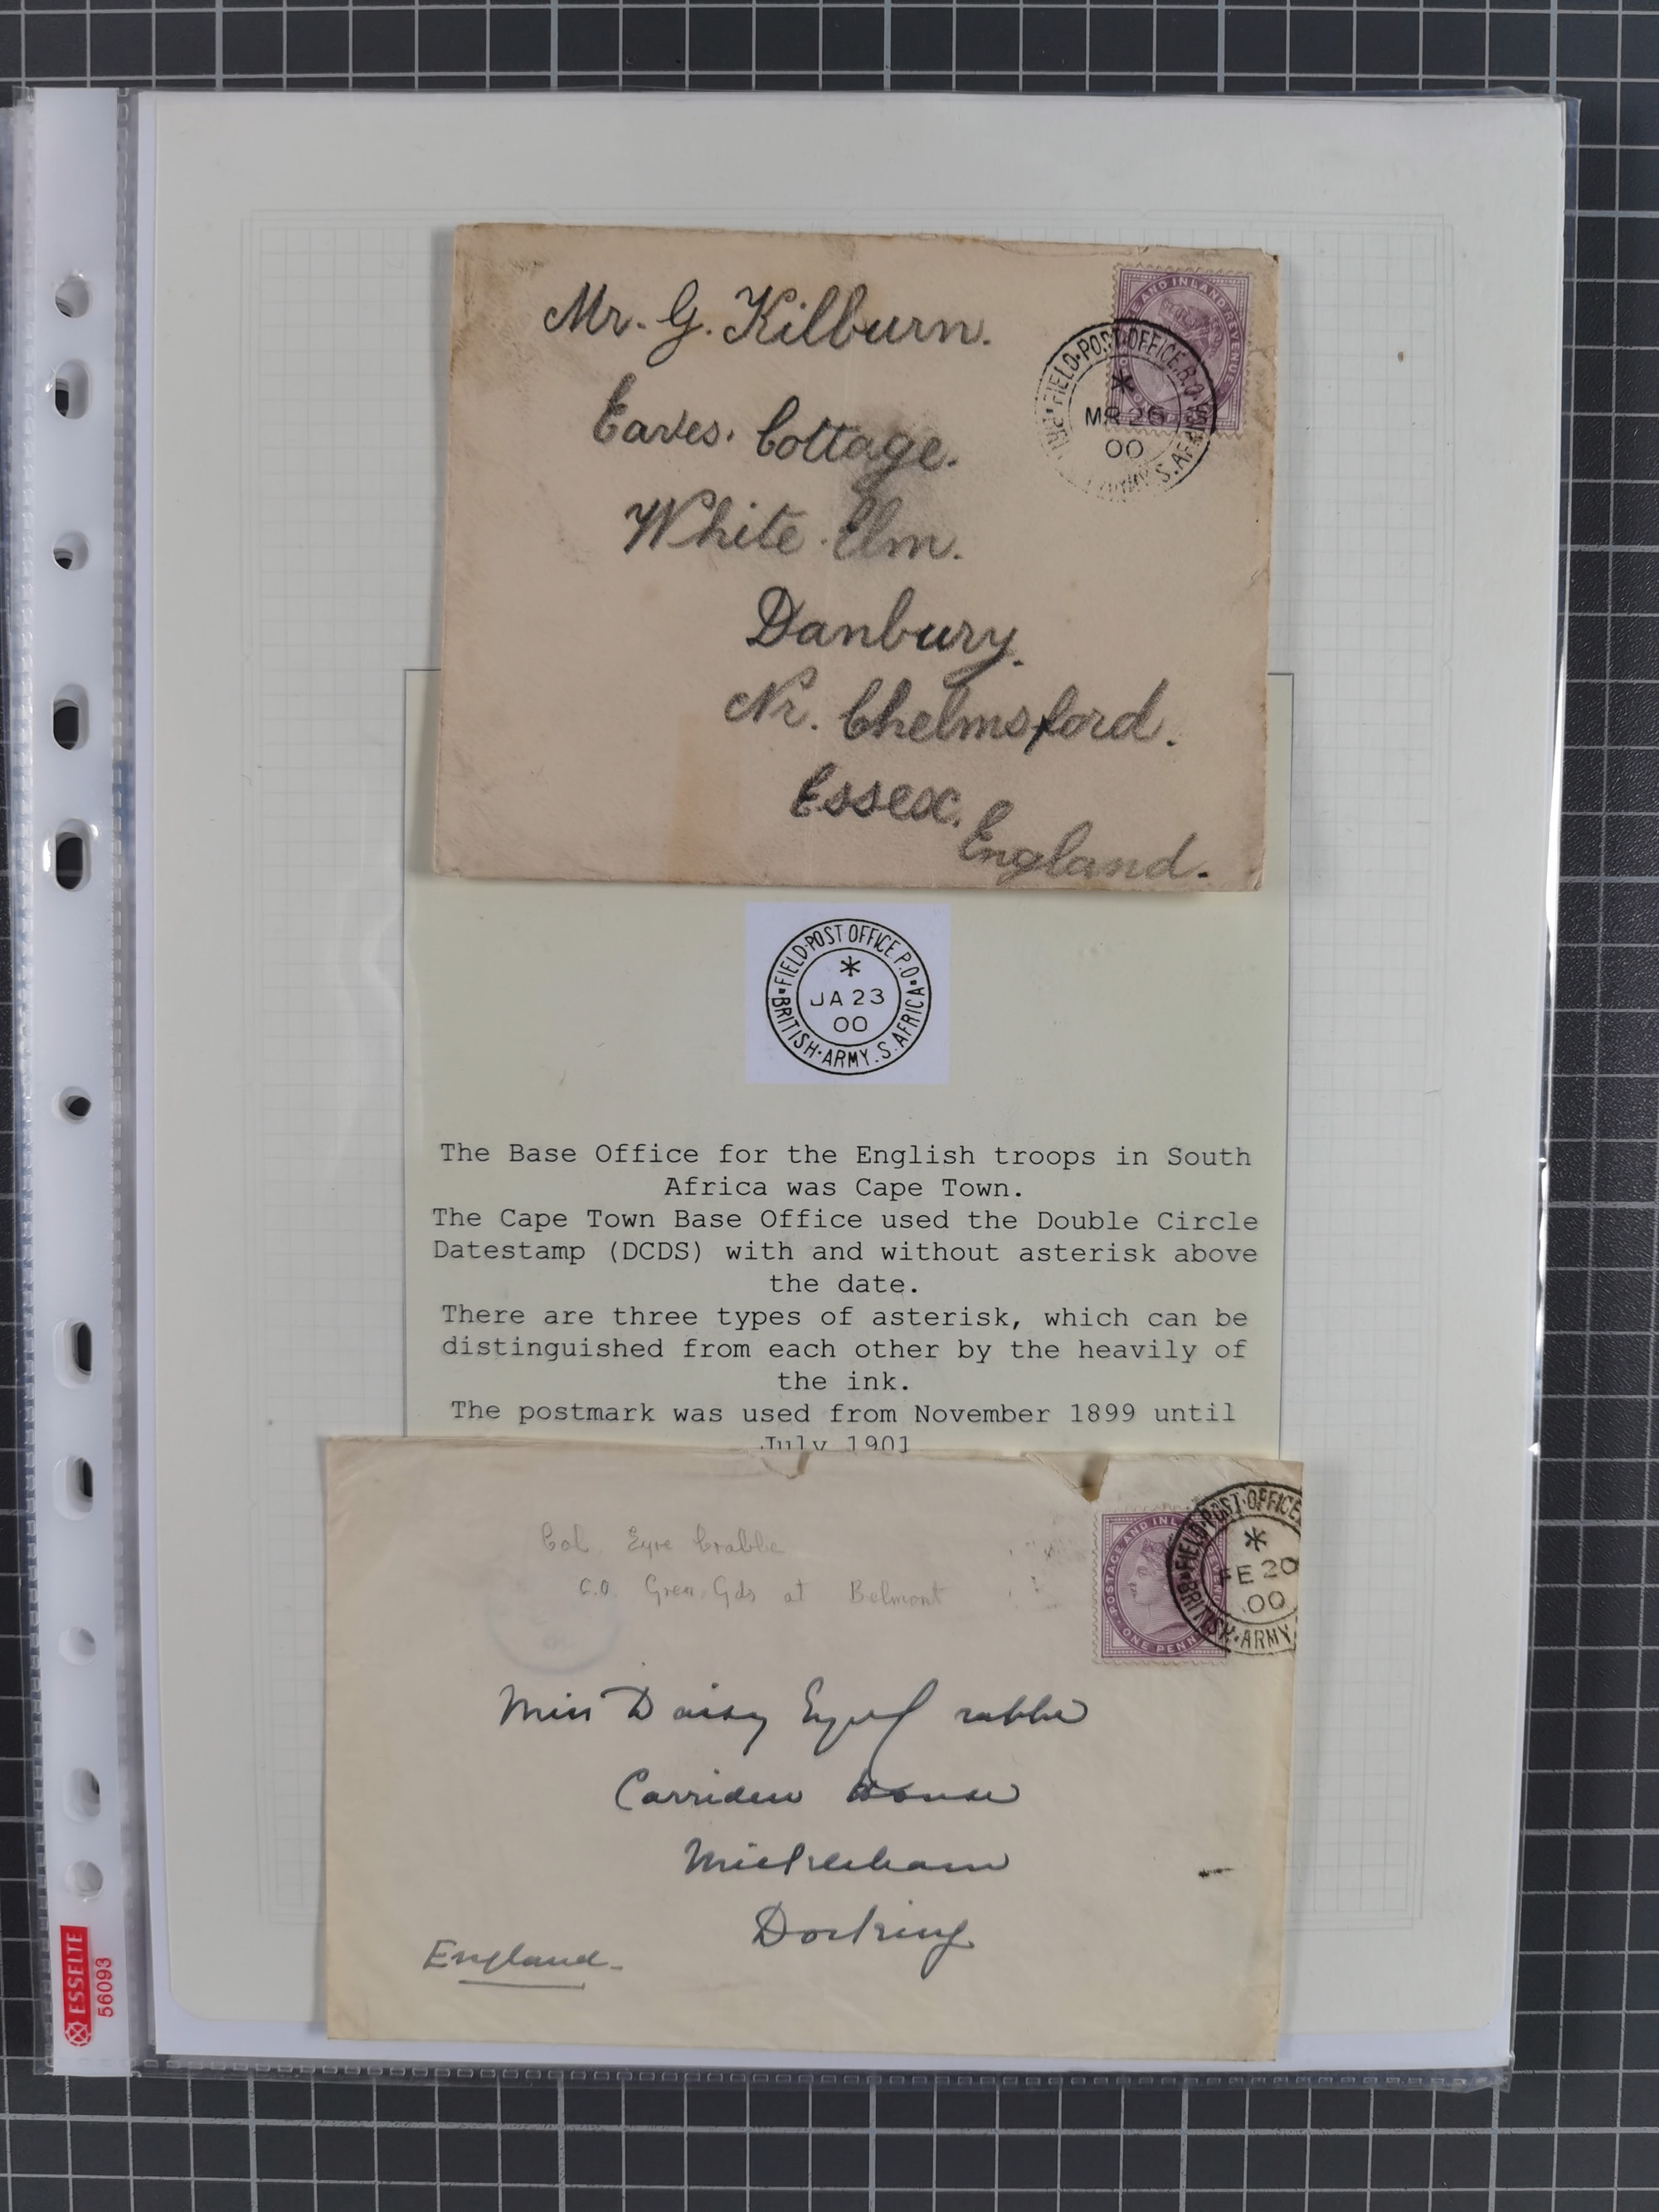 Mr. G. Kilburn.
Eaves. Cottage.
White Elm.
Danbury.
Nr. Chelmsford.
Essex.
England.
E AND INLAND REVENUE
FIELD·POST·OFFICE
*
MR 26
00
S.AFR
FIELD·POST OFFICE P.O
*
JA 23
00
BRITISH·ARMY.S.AFRICA
The Base Office for the English troops in South
Africa was Cape Town.
The Cape Town Base Office used the Double Circle
Datestamp (DCDS) with and without asterisk above
the date.
There are three types of asterisk, which can be
distinguished from each other by the heavily of
the ink.
The postmark was used from November 1899 until
July 1901
Col. Eyre Crabbe
C.O. Gren. Gds at Belmont
POSTAGE AND INL
ONE PENN
FIELD·POST·OFFICE
*
FE 20
00
BRITISH·ARMY
Miss Daisy Eyre Crabbe
Carriden House
Mickleham
Dorking
England.
ESSELTE
56093